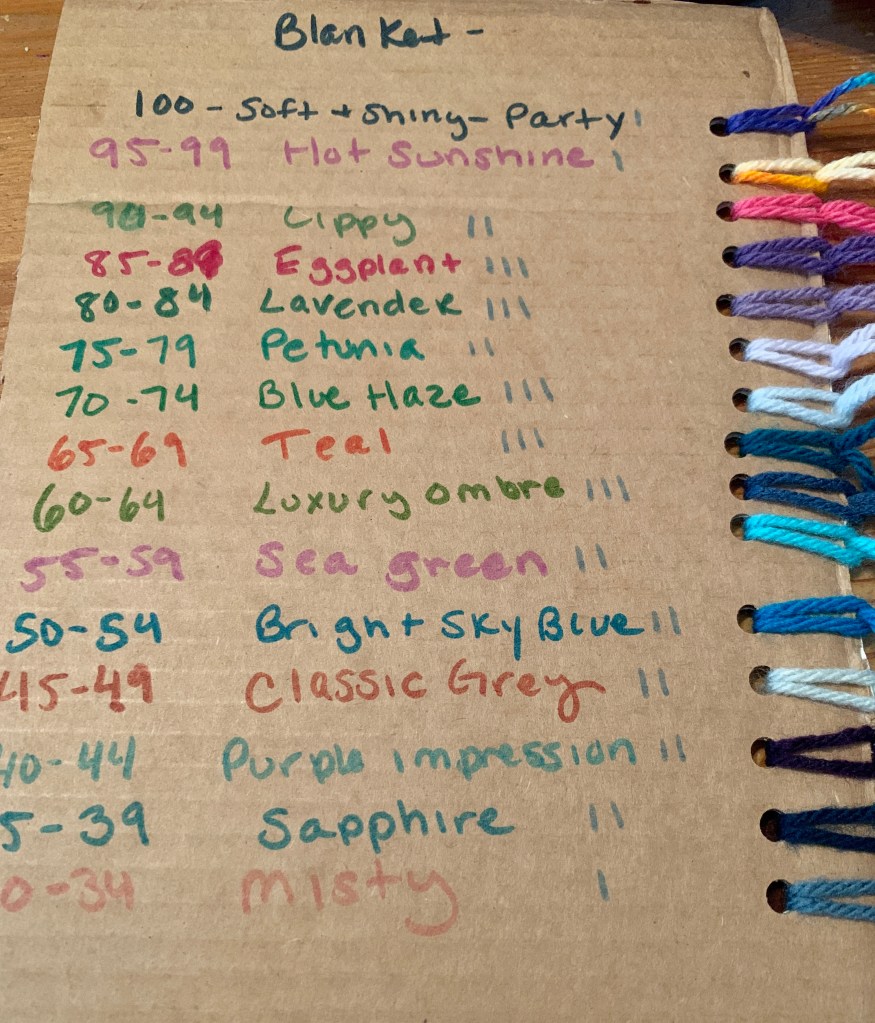 Blanket -
100 - Soft + Shiny - Party I
95-99 Hot Sunshine I
90-94 Lippy II
85-89 Eggplant III
80-84 Lavender III
75-79 Petunia II
70-74 Blue Haze III
65-69 Teal III
60-64 Luxury ombre III
55-59 Sea green II
50-54 Bright Sky Blue II
45-49 Classic Grey II
40-44 Purple impression II
5-39 Sapphire II
0-34 Misty I